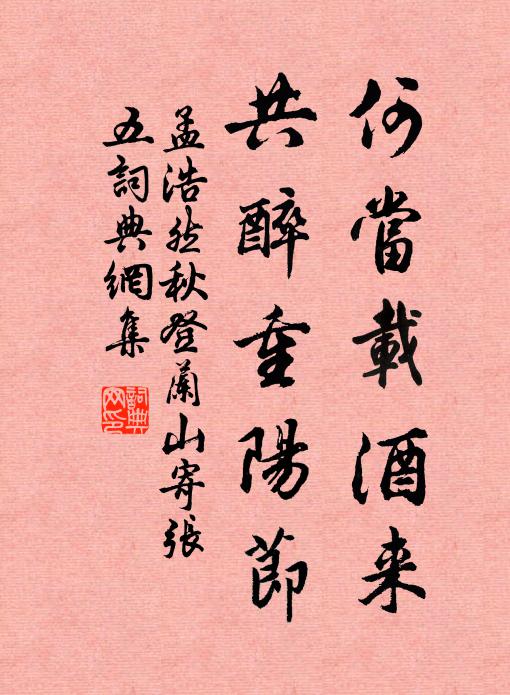 何當載酒来
共醉重陽節
孟浩然秋登蘭山寄張
五詞典網集
詞典网印